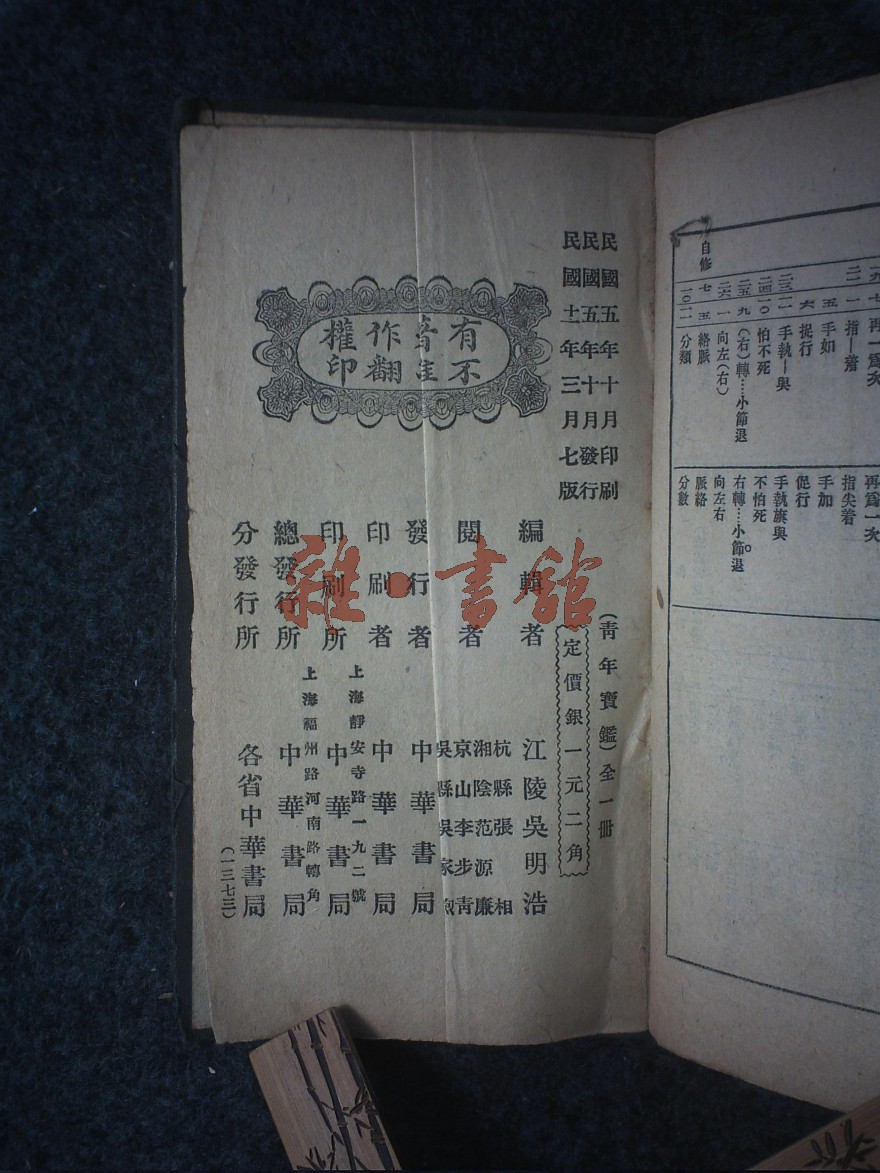 民國五年十月印刷
民國五年十月發行
民國十一年三月七版
有不
著作
權翻
印
(青年寶鑑)全一冊
定價銀一元二角
編輯者 江陵吳明浩
閱者 杭縣張相
湘陰范源廉
京山李步青
吳縣吳家
發行者 中華書局
印刷者 中華書局
上海靜安寺路一九二號
印刷所 中華書局
上海福州路河南路轉角
總發行所 中華書局
分發行所 各省中華書局
(一三七三)
雜·書館
再一爲次
再爲一次
二一 一 指—着 指尖着
五 手如 手加
六 捉行 促行
二三 一 手執—與 手執旗與
二四 一〇 怕不死 不怕死
二五 九 (右)轉…小節退 右轉…小節退
二六 一 向左(右) 向左右
自修 七 五 絡脈 脈絡
一〇 二 分類 分數